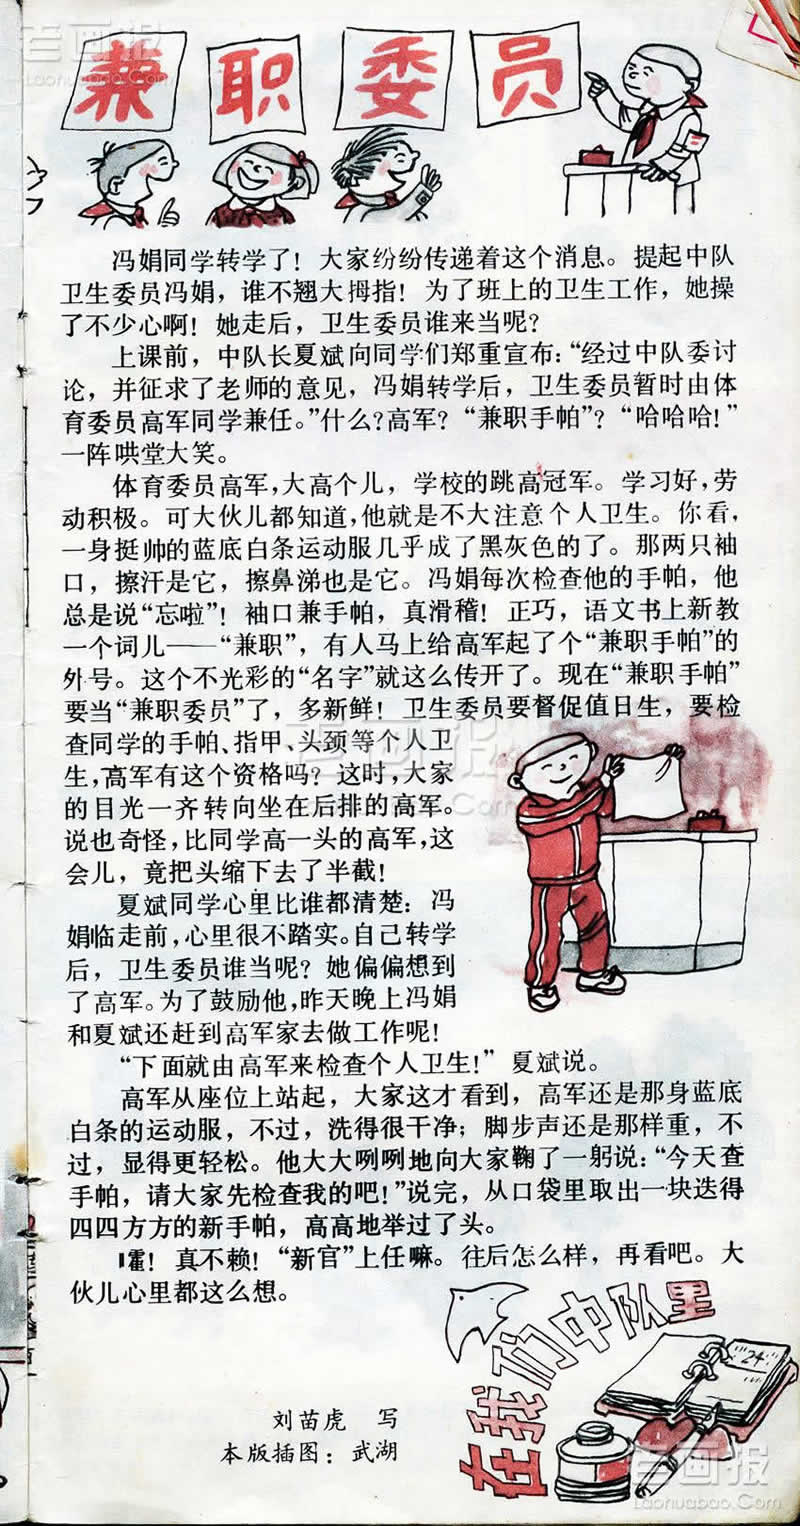 老画报
LaoHuaBao.Com
兼职委员
冯娟同学转学了！大家纷纷传递着这个消息。提起中队
卫生委员冯娟，谁不翘大拇指！为了班上的卫生工作，她操
了不少心啊！她走后，卫生委员谁来当呢？
上课前，中队长夏斌向同学们郑重宣布：“经过中队委讨
论，并征求了老师的意见，冯娟转学后，卫生委员暂时由体
育委员高军同学兼任。”什么？高军？“兼职手帕”？“哈哈哈！”
一阵哄堂大笑。
体育委员高军，大高个儿，学校的跳高冠军。学习好，劳
动积极。可大伙儿都知道，他就是不大注意个人卫生。你看，
一身挺帅的蓝底白条运动服几乎成了黑灰色的了。那两只袖
口，擦汗是它，擦鼻涕也是它。冯娟每次检查他的手帕，他
总是说“忘啦”！袖口兼手帕，真滑稽！正巧，语文书上新教
一个词儿——“兼职”，有人马上给高军起了个“兼职手帕”的
外号。这个不光彩的“名字”就这么传开了。现在“兼职手帕”
要当“兼职委员”了，多新鲜！卫生委员要督促值日生，要检
查同学的手帕、指甲、头颈等个人卫
生，高军有这个资格吗？这时，大家
的目光一齐转向坐在后排的高军。
说也奇怪，比同学高一头的高军，这
会儿，竟把头缩下去了半截！
夏斌同学心里比谁都清楚：冯
娟临走前，心里很不踏实。自己转学
后，卫生委员谁当呢？她偏偏想到
了高军。为了鼓励他，昨天晚上冯娟
和夏斌还赶到高军家去做工作呢！
“下面就由高军来检查个人卫生！”夏斌说。
高军从座位上站起，大家这才看到，高军还是那身蓝底
白条的运动服，不过，洗得很干净；脚步声还是那样重，不
过，显得更轻松。他大大咧咧地向大家鞠了一躬说：“今天查
手帕，请大家先检查我的吧！”说完，从口袋里取出一块迭得
四四方方的新手帕，高高地举过了头。
嚯！真不赖！“新官”上任嘛。往后怎么样，再看吧。大
伙儿心里都这么想。
在我们中队里
24
刘苗虎 写
本版插图：武湖
老画报
LaoHuaBao.Com